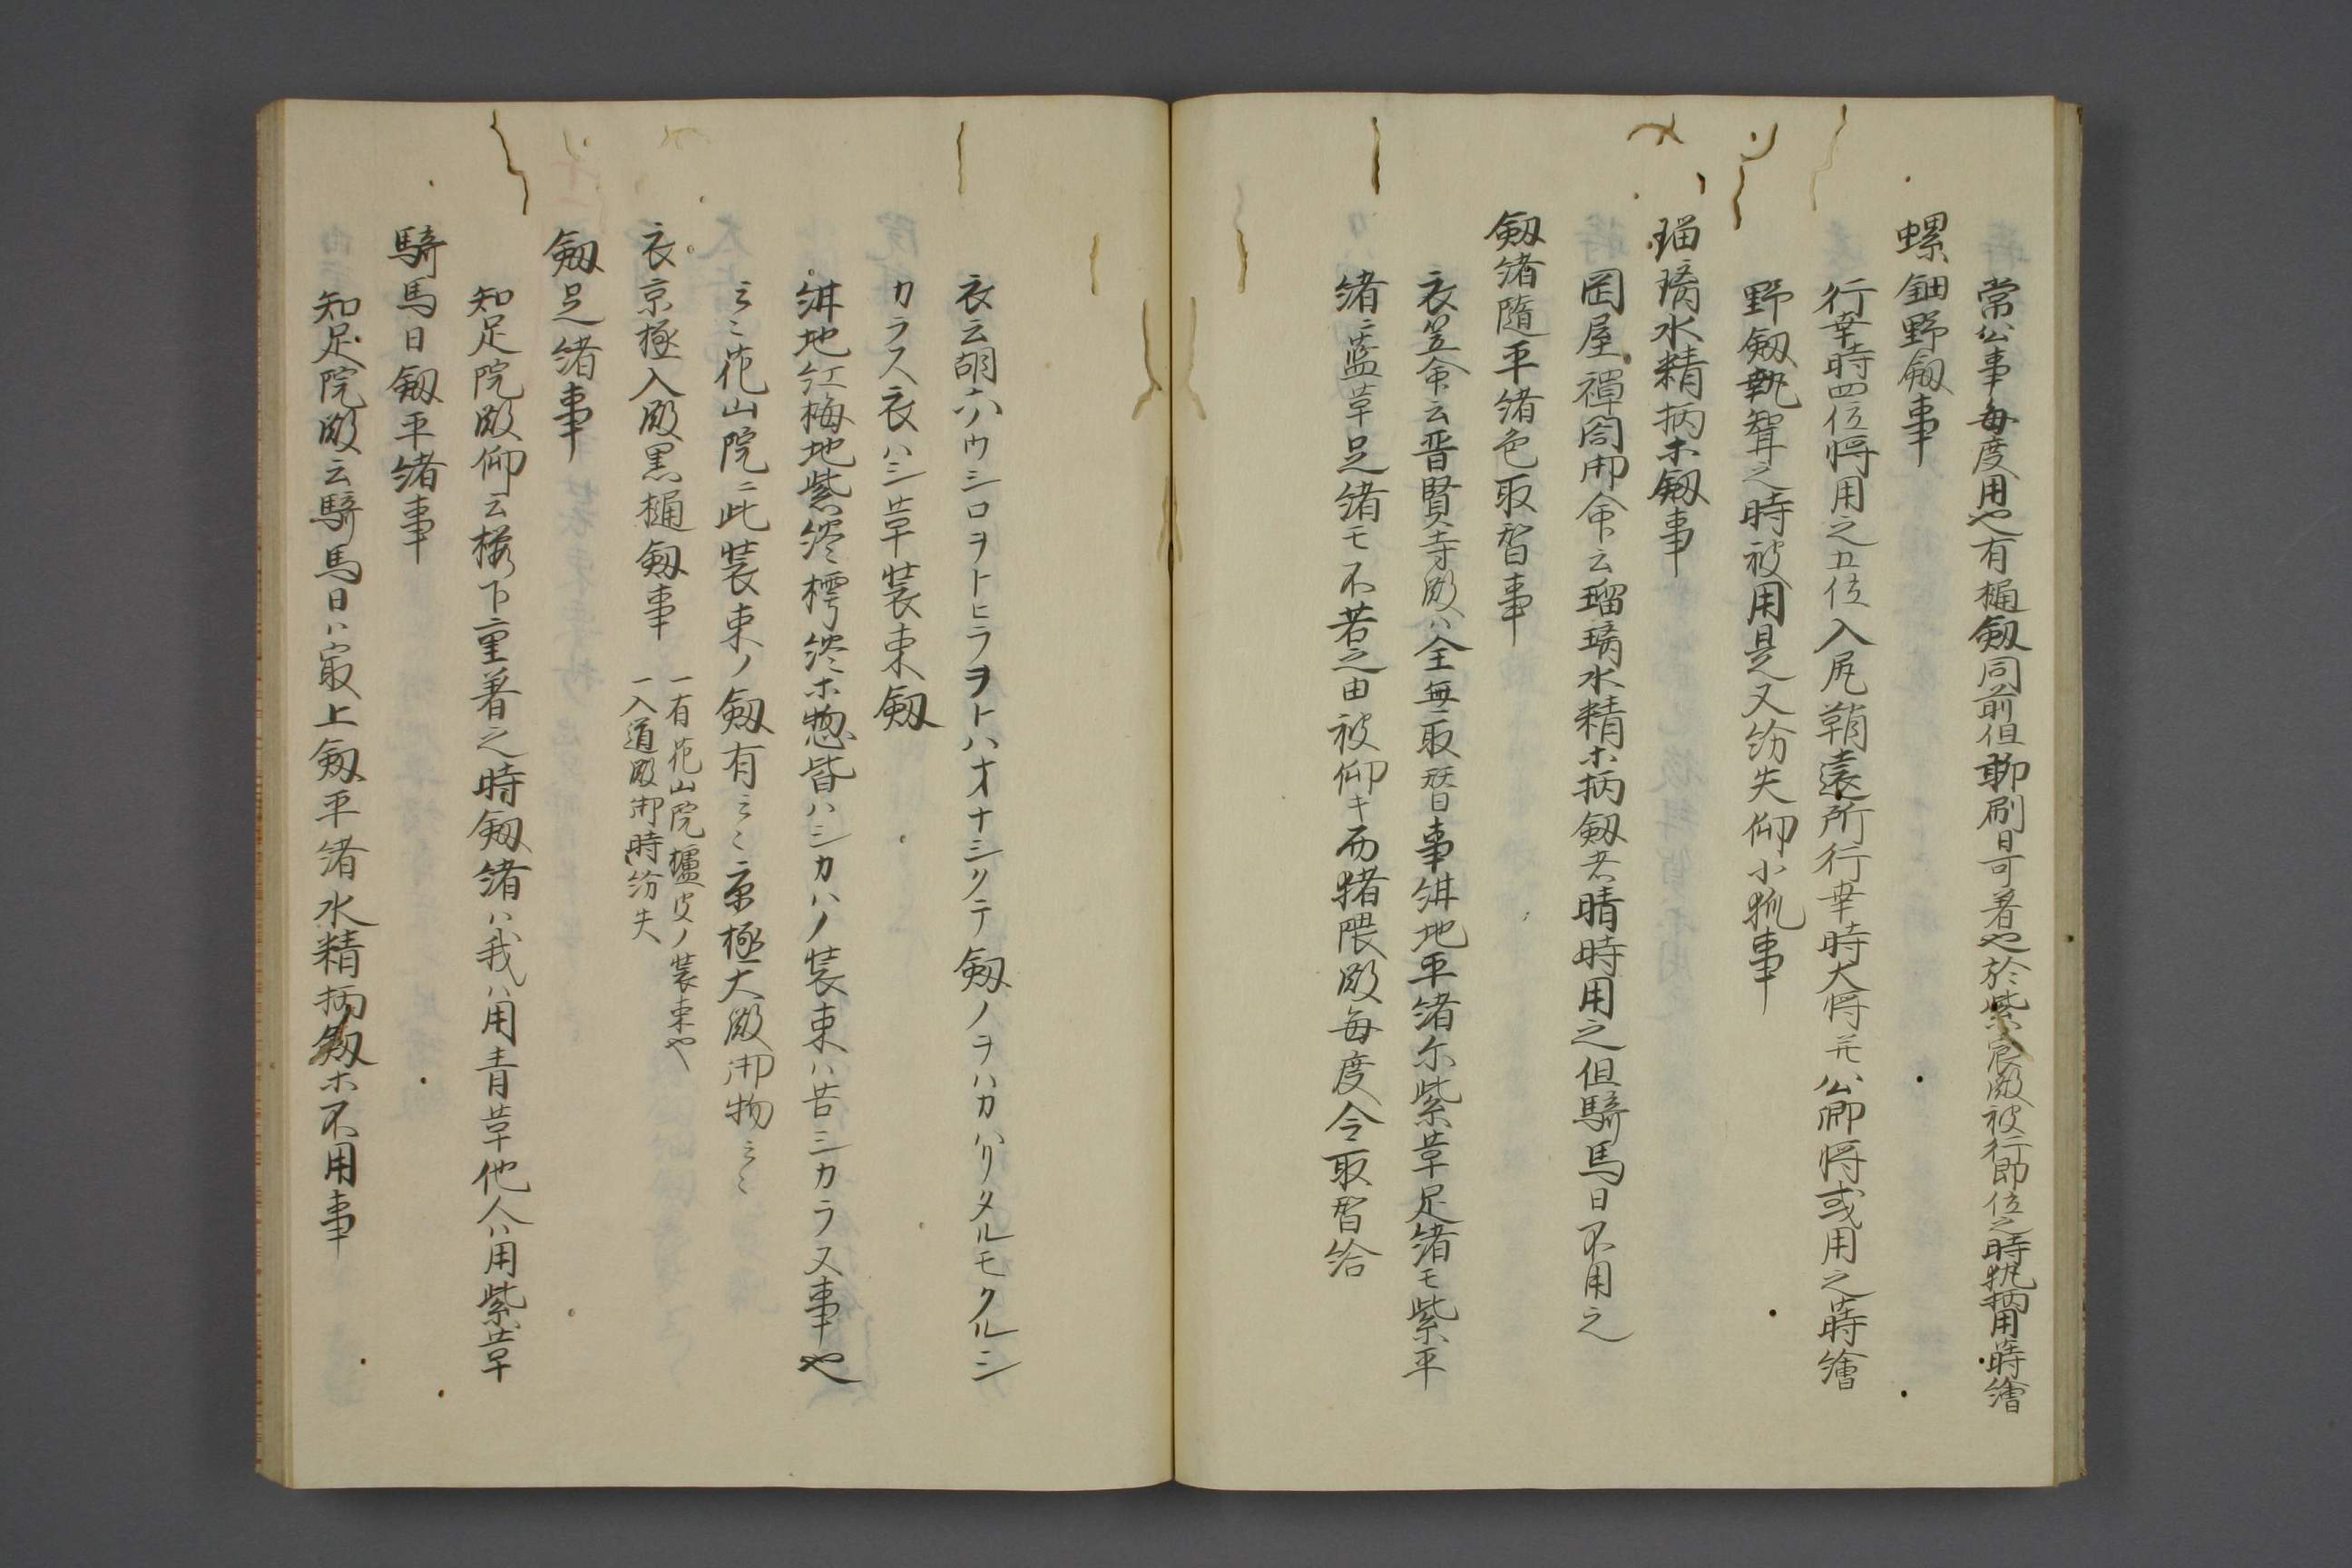 常公事毎度用也有樋劔同前但聊刷日可著也於紫宸殿被行即位之時執柄用蒔繪
螺鈿野劔事
行幸時四位将用之五位入尻鞘遠所行幸時大将并公卿将或用之蒔繪
野劔執聟之時被用是又紛失仰小狐事
瑠璃水精柄ホ劔事
岡屋禅閤御命云瑠璃水精ホ柄劔者晴時用之但騎馬日不用之
劔緒随平緒色取替事
衣笠命云普賢寺殿ハ全無取替事紺地平緒尓紫革足緒モ紫平
緒ニ藍革足緒モ不苦之由被仰キ而猪隈殿毎度令取替給
衣云胡六ハウシロヲトヒラヲトハオナシクテ劔ノヲハカハリタルモクルシ
カラス衣ハシ革装束劔
紺地紅梅地紫終樗終ホ惣皆ハシカハノ装束ハ苦シカラヌ事也
云々花山院ニ此装束ノ劔有云々京極大殿御物云々
衣京極入殿黒樋劔事
一有花山院櫨皮ノ装束也
一入道殿御時紛失
劔足緒事
知足院殿仰云桜下重著之時劔緒ハ我ハ用青革他人ハ用紫革
騎馬日劔平緒事
知足院殿云騎馬日ハ最上劔平緒水精柄劔ホ不用事